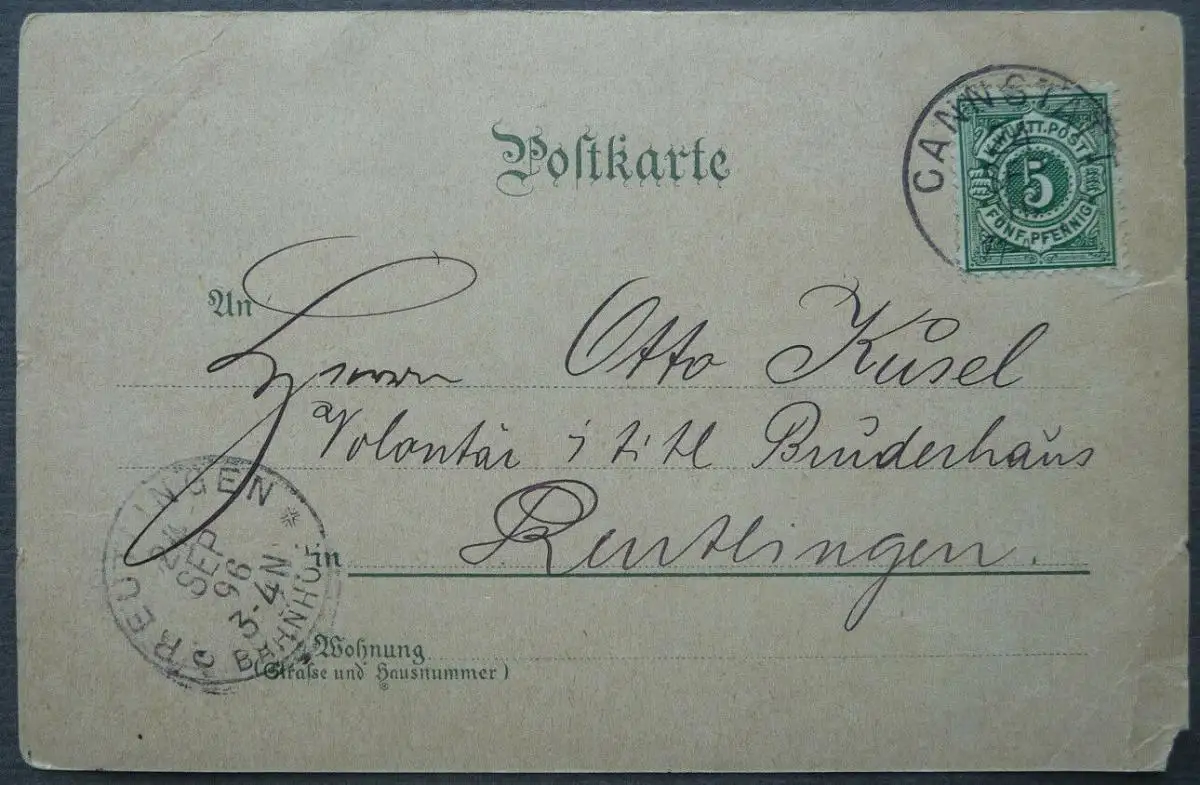 Postkarte
CANNSTATT
K.WÜRTT.POST
5
FÜNF PFENNIG
An
Herrn Otto Kusel
Volontär i tit Bruderhaus
in Reutlingen.
REUTLINGEN
24
SEP
96
3-4N
BAHNHOF
Wohnung
(Straſse und Hausnummer)